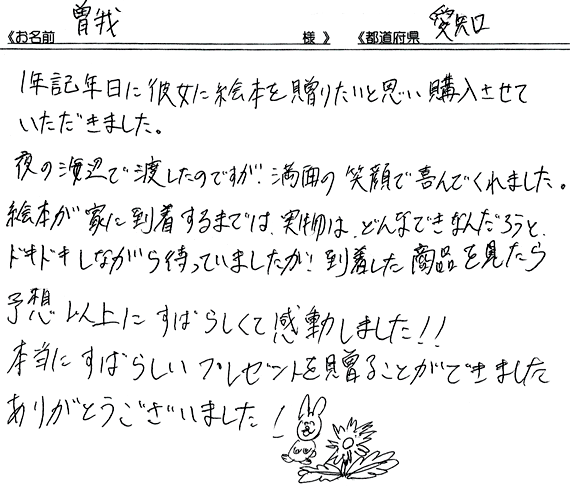 《お名前 曽我 様》 《都道府県 愛知
1年記年日に彼女に絵本を贈りたいと思い購入させて
いただきました。
夜の海辺で渡したのですが、満面の笑顔で喜んでくれました。
絵本が家に到着するまでは、実物は、どんなできなんだろうと、
ドキドキしながら待っていましたが、到着した商品を見たら
予想以上にすばらしくて感動しました!!
本当にすばらしいプレゼントを贈ることができました
ありがとうございました!